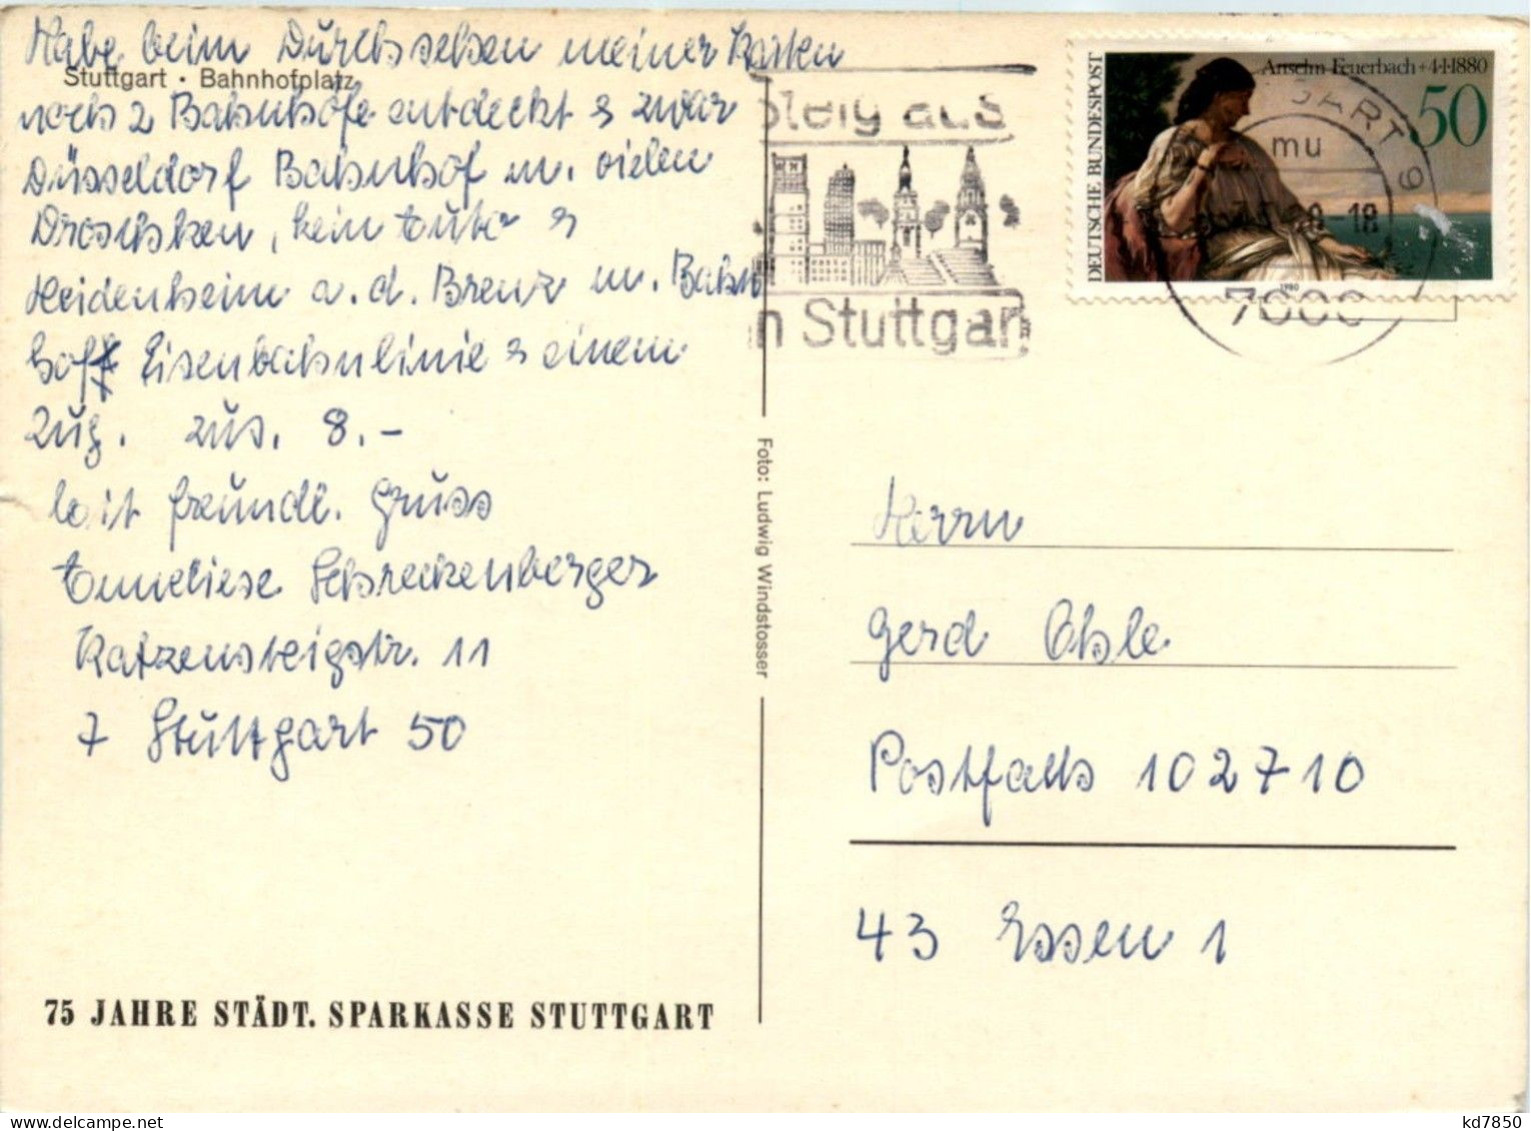 Habe beim Durchsehen meiner Karten
Stuttgart · Bahnhofplatz
noch 2 Bahnhöfe entdeckt & zwar
Düsseldorf Bahnhof m. vielen
Droschken, kein Auto &
Heidenheim a. d. Brenz m. Bahn
hof Eisenbahnlinie & einem
Zug. zus. 8.-
Mit freundl. Gruss
Anneliese Schreckenberger
Katzensteigstr. 11
7 Stuttgart 50
75 JAHRE STÄDT. SPARKASSE STUTTGART
Foto: Ludwig Windstosser
steig aus
in Stuttgart
DEUTSCHE BUNDESPOST
Anselm Feuerbach + 4·1·1880
50
1980
mu
18
7000
Herrn
Gerd Ohle
Postfach 102710
43 Essen 1
kd7850